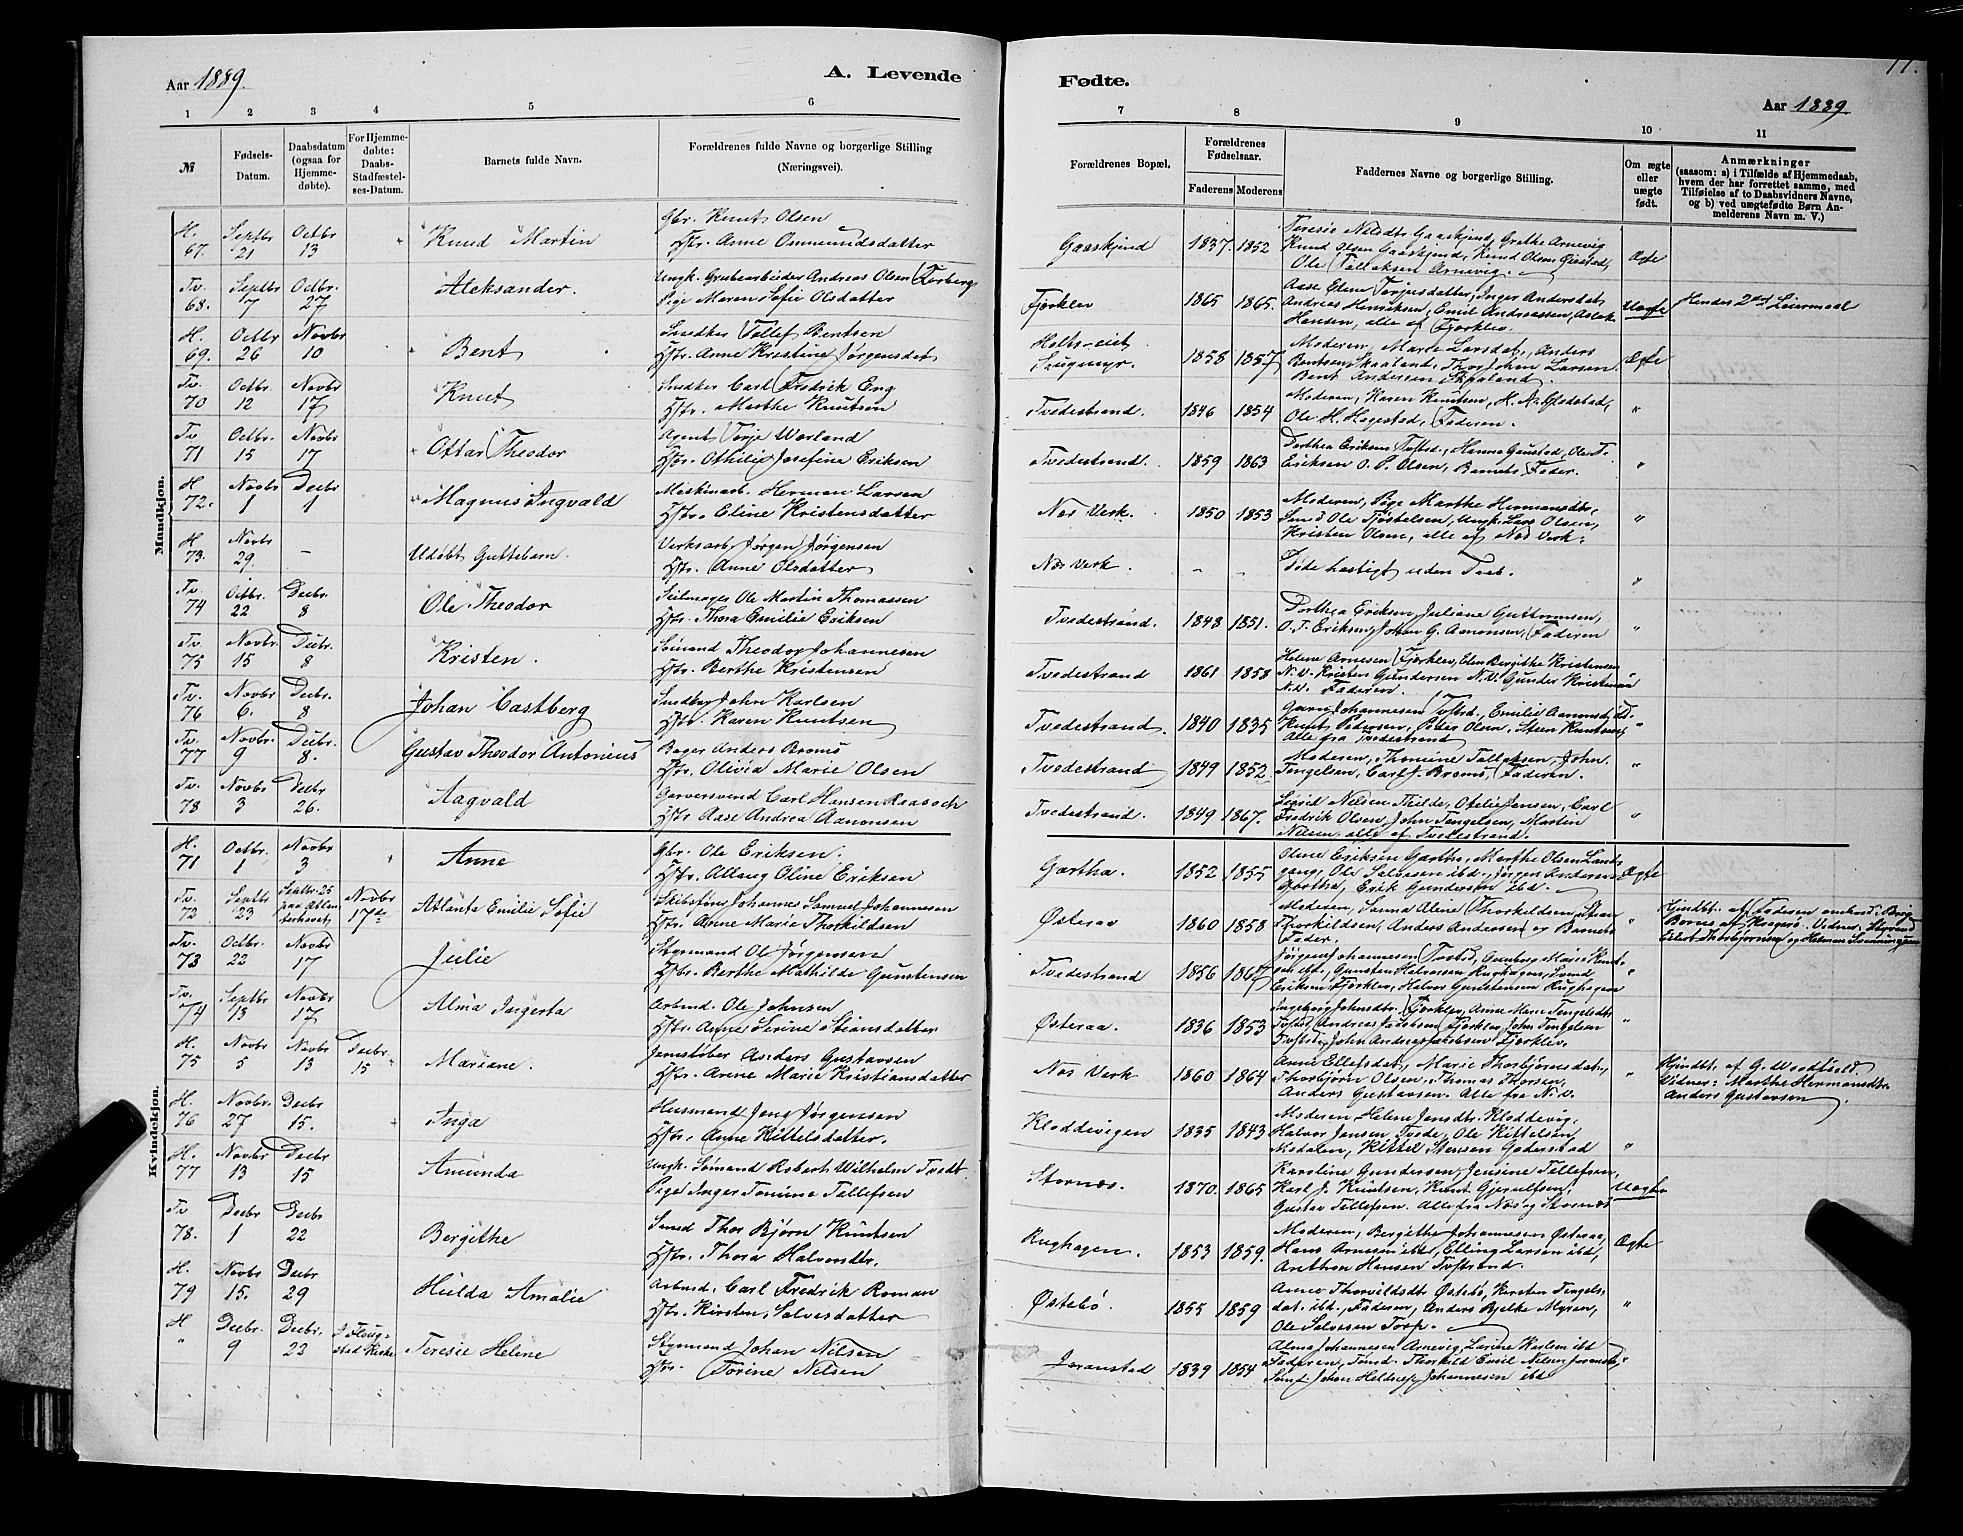 Aar 1889.
A. Levende
Fødte.
Aar 1889.
1 2 3 4 5 6 7 8 9 10 11
№
Fødsels-
Datum.
Daabsdatum
(ogsaa for
Hjemme-
døbte).
For Hjemme-
døbte:
Daabs-
Stadfæstel-
ses-Datum.
Barnets fulde Navn.
Forældrenes fulde Navne og borgerlige Stilling
(Næringsvei).
Forældrenes Bopæl.
Forældrenes
Fødselsaar.
Faderens Moderens
Faddernes Navne og borgerlige Stilling.
Om ægte
eller
uægte
født.
Anmærkninger
(saasom: a) i Tilfælde af Hjemmedaab,
hvem der har forrettet samme, med
Tilføielse af to Daabsvidners Navne,
og b) ved uægtefødte Børn An-
melderens Navn m. V.)
Mandkjøn.
H. 67. Septbr 21 Octbr 13 Knud Martin
Gbr. Knut Olsen
Hstr. Anne Ommundsdatter
Gaaskjend 1837. 1852
Teresie Nilsdtr Gaaskjend, Grethe Arnevig
Knud Olsen Gaaskjend, Knud Olsen
Ole Tellaksen Arnevig.
Ægte
Tv. 68. Septbr 7 Octbr. 27 Aleksander.
Ungk. Grubearbeider Andreas Olsen
Pige Maren Sofie Olsdatter
Fjerklev 1865 1865.
Aase Oline Torjusdatter, Inger Andersdat,
Andreas Henriksen, Emil Andreassen, Aslak
Hansen, alle af Fjerklev.
Uægte Hendes 2det Leiermaal
H. 69. Octbr 26 Novbr 10 Bent
Snedker Tellef Bentsen
Hstr. Anne Kristine Jørgensdat
Holts-eiet
1858 1857
Moderen, Marie Larsdat, Anders
Bentsen Skaaland, Thor John Larsen
Bent Andersen Skaaland.
Ægte
Tv. 70 Octbr. 12 Novbr. 17 Knut
Snedker Carl Fredrik Eng
Hstr. Marthe Knutsen
Tvedestrand. 1846 1854
Moderen, Karen Knutsen, H. A. Gladstad,
Ole H. Hagestad, Faderen.
"
Tv 71 Octbr. 15 Novbr. 17 Ottar Theodor
Agent Torje Vorland
Hstr. Othilie Josefine Eriksen
Tvedestrand. 1859 1863
Dorthea Eriksen Tofted, Hanna Gunstad, Ole T.
Eriksen O. P. Olsen, Barnets Fader.
"
H 72. Novbr 1 Decbr 1 Magnus Ingvald
Maskinarb. Herman Larsen
Hstr. Eline Kristensdatter
Nos Verk. 1850 1853
Moderen, Pige Marthe Hermansdtr,
Smed Ole Tjøstelsen, Ungk. Lars Olsen,
Kristen Olsen, alle af Nos Verk.
"
H 73. Novbr 29. - Udøbt Guttebarn.
Verksarb. Jørgen Jørgensen
Hstr. Anne Olsdatter
Nos Verk. - -
Døde hastigt uden Daab.
"
Tv. 74 Octbr. 22 Decbr. 8 Ole Theodor
Seilmager Ole Martin Thomassen
Hstr. Thora Emilie Eriksen
Tvedestrand. 1848 1851.
Dorthea Eriksen, Juliane Guttormsen,
O. T. Eriksen, Johan G. Aanonsen, Faderen
"
Tv. 75 Novbr. 15 Decbr. 8 Kristen.
Sømand Theodor Johannesen
Hstr. Berthe Kristensen
Tvedestrand 1861 1858
Helene Arnesen Fjerklev, Elen Bergithe Kristensen
N.V. Kristen Gundersen N.V. Gunder Kristensen
N.V. Faderen.
"
Tv. 76 Novbr 6. Decbr. 8 Johan Castberg
Snedker John Karlsen
Hstr. Karen Knutsen
Tvedestrand 1840 1835
Johannesen Tofted, Emilie
Knut Pedersen, Peder Olsen, Steen Knutsen
Alle fra Tvedestrand
"
Tv. 77 Novbr. 9 Decbr. 8. Gustav Theodor Antonius
Bager Anders Broms
Hstr. Olivia Marie Olsen
Tvedestrand 1849 1852
Moderen, Thomine Tellaksen, John
Tengelsen, Carl J. Broms, Faderen.
"
Tv. 78 Novbr 3 Decbr 26. Aagvald
Garversvend Carl Hansen Raasoch
Hstr Aase Andrea Aanonsen
Tvedestrand. 1849 1867.
Sigrid Nilsen Thilde, Otelie Jensen, Carl
Fredrik Olsen, John Tengelsen, Martin
Nilsen, alle af Tvedestrand.
"
Kvindekjøn.
H. 71 Octbr. 1 Novbr 3 Anne
Gbr. Ole Eriksen.
Hstr. Allaug Oline Eriksen
Gartha. 1852 1855
Oline Eriksen Gartha, Marthe Olsen Land-
gang, Ole Salvesen ibd. Jørgen Andersen
Gartha, Erik Gundersen ibd.
Ægte
Tv. 72 Septbr 23 Septbr. 25 paa Atlan-terhavet. Novbr 17de Atlanta Emilie Sofie
Skibsfører Johannes Samuel Johannesen
Hstr. Anne Marie Thorkildsen
Østeraa 1860 1858
Moderen, Sanna Aline Thorkildsen,
Thorkildsen, Anders Andersen og Barnets
Fader.
"
Hjmdbt. af Faderen ombord i Brig
Borneo af Kragerø. Vidner: Styrmd
Tv. 73 Octbr. 22 Novbr. 17 Julie
Styrmand Ole Jørgensen
Hstr. Berthe Mathilde Gunstensen
Tvedestrand 1856 1867
Jørgine Johannesen Tvetsd, Gunborg Marie Knut-
sen ibd., Gunsten Halvorsen Rughagen, Svend
Eriksen Fjerklev, Halvor Gunstensen Rughagen
"
Tv. 74 Septbr 13 Novbr. 17 Alma Ingerta
Arbmd. Ole Johnsen
Hstr. Anne Serine Stiansdatter
Østeraa. 1836 1853
Ingeborg Johnsdtr. Fjerklev, Anne Marie Tengelsdtr
Tofted, Andreas Jakobsen Fjerklev, John Tengelsen
Tofted, John Andreas Jakobsen Fjerklev,
"
H. 75 Novbr 5 Novbr 13 Decbr 15 Mariane.
Jernstøber Anders Gustavsen
Hstr. Anne Marie Kristiansdatter
Nos Verk 1860 1864
Anne Ellefsdat, Marie Thorbjørnsdat,
Thorbjørn Olsen, Thomas Thorsen,
Anders Gustavsen. Alle fra N.V.
"
Hjmdbt. af G. Woodfield.
Vidner: Marthe Hermansdtr.
Anders Gustavsen
H. 76 Novbr. 27 Decbr 15. Inga
Husmand Jens Jørgensen
Hstr. Anne Kittelsdatter.
Kloddevigen 1835 1843
Moderen Helene Jensdtr. Kloddevig,
Halvor Jensen Tvede, Ole Kittelsen
Mosdalen, Kittel Stensen Goderstad
"
H. 77 Novbr 13 Decbr 15 Amunda
Ungk. Sømand Robert Wilhelm Tvedt
Pige Inger Tomine Tellefsen
Stornæs. 1870. 1865
Karoline Gundersen, Jensine Tellefsen,
Karl J. Knutsen, Knut Gjerulfsen,
Gustav Tellefsen. Alle fra Næs og Stornæs
Uægte
Tv 78. Decbr 1 Decbr 22 Bergithe
Smed Thor Bjørn Knutsen
Hstr. Thora Halvorsdtr.
Rughagen. 1853 1859.
Moderen, Bergithe Johannesen Østeraa,
Hans Arnesen ibd, Elling Larsen ibd,
Anthon Hansen Tvestrand.
Ægte
H. 79 Novbr 15. Decbr 29 Hulda Amalie
Arbmd. Carl Fredrik Roman
Hstr. Kirsten Salvesdatter
Østebø. 1855 1859
Anne Thorvildsdt Østebø, Kirsten Tengels-
dat. ibd., Faderen, Anders Bjelke Myren,
Ole Salvesen Torp.
"
H " Decbr. 9 Decbr. 23 I Flaug-stad Kirke Teresie Helene
Styrmand Johan Nilsen
Hstr. Torine Nilsen
Joranstad 1839 1854
Alma Johannesen Arnevig, Larine Karlsen ibd
Faderen, Tømd. Thorkild Emil Nilsen Joranstd,
Sømd. Johan Heldrup Johannesen ibd
"